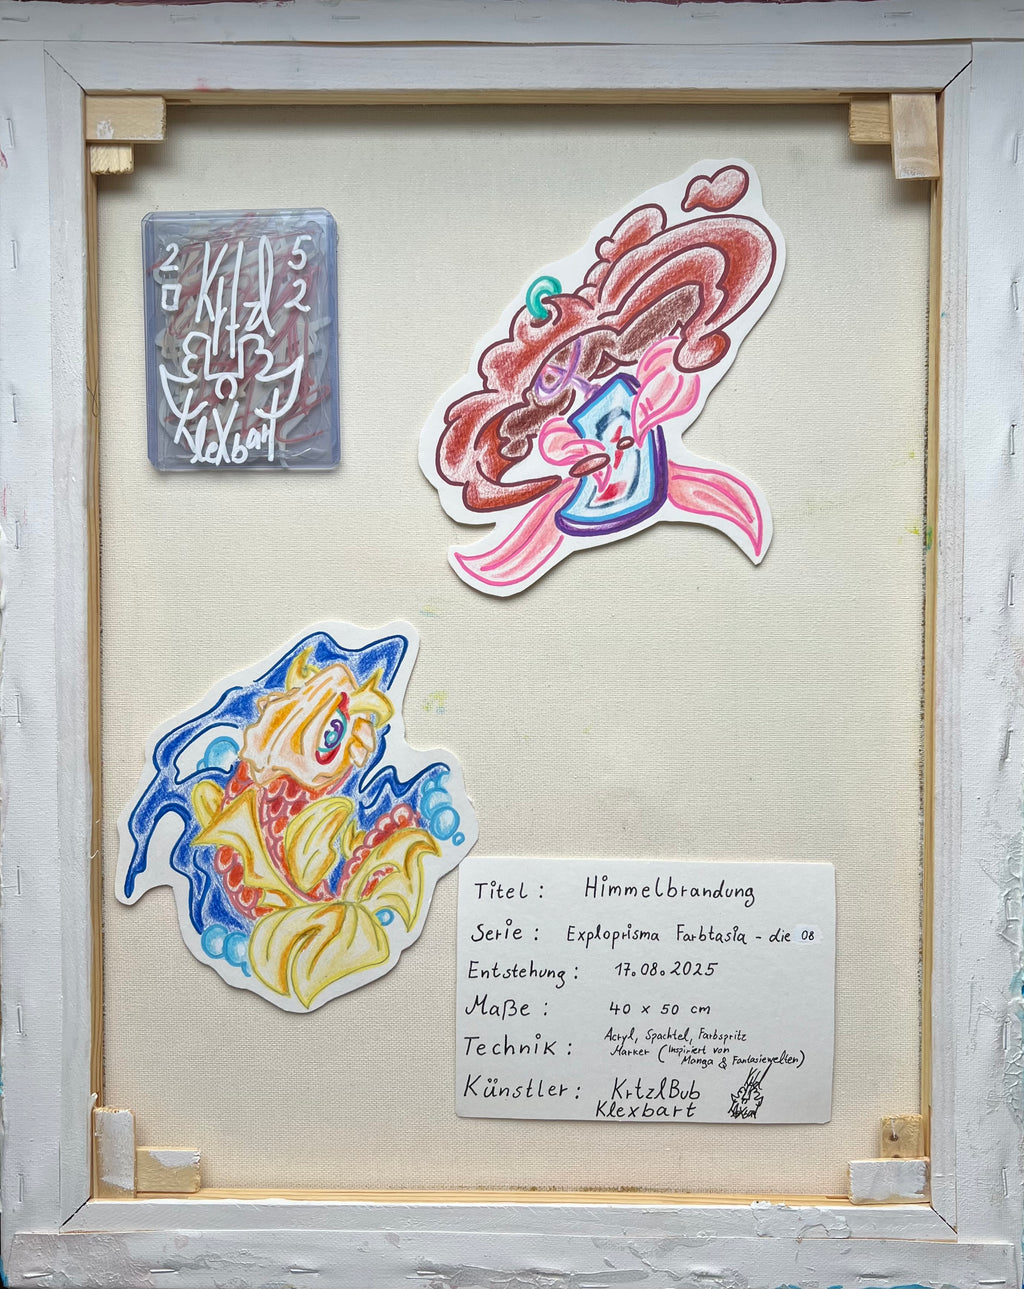 2 5
0 2
Krtzl
BUB
Klexbart
Titel : Himmelbrandung
Serie : Exploprisma Farbtasia - die 08
Entstehung : 17.08.2025
Maße : 40 x 50 cm
Technik : Acryl, Spachtel, Farbspritz
Marker (Inspiriert von
Manga & Fantasiewelten)
Künstler : KrtzlBub
Klexbart